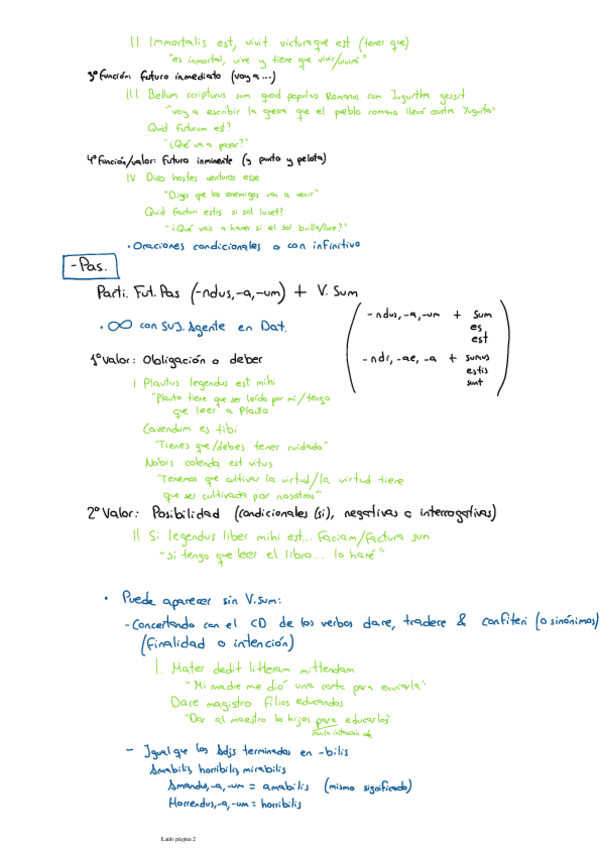 II Immortalis est, vivit victuraque est (tener que)
"es inmortal, vive y tiene que vivir/vivirá"
3ª función: futuro inmediato (voy a...)
III Bellum scripturus sum quod populus Romanus cum Iugurtha gessit
"voy a escribir la guerra que el pueblo romano llevó contra Yugurta"
Quid futurum est?
"¿Qué va a pasar?"
4ª función/valor: futuro inminente (y punto y pelota)
IV Dico hostes venturos esse
"Digo que los enemigos van a venir"
Quid facturi estis si sol lucet?
"¿Qué vas a hacer si el sol brilla/luce?"
• Oraciones condicionales o con infinitivo
- Pas.
Parti. Fut. Pas (-ndus, -a, -um) + V. Sum
• ∞ con Suj. Agente en Dat.
- ndus, -a, -um + sum
es
est
- ndi, -ae, -a + sumus
estis
sunt
1º Valor: Obligación o deber
I Plautus legendus est mihi
"Plauto tiene que ser leído por mí/tengo
que leer a Plauto
Cavendum es tibi
"Tienes que/debes tener cuidado"
Nobis colenda est vitus
"Tenemos que cultivar la virtud/la virtud tiene
que ser cultivada por nosotros"
2º Valor: Posibilidad (condicionales (si), negativas o interrogativas)
II Si legendus liber mihi est... Faciam/factura sum
"si tengo que leer el libro... lo haré"
• Puede aparecer sin V. sum:
- Concertando con el CD de los verbos dare, tradere & confiteri (o sinónimos)
(finalidad o intención)
I. Mater dedit litteram mittendam
"Mi madre me dio una carta para enviarla"
Dare magistro filios educandos
"Dar al maestro los hijos para educarlos"
con la intención de
- Igual que los Adjs terminados en -bilis
Amabilis, horribilis, mirabilis
Amandus, -a, -um = amabilis (mismo significado)
Horrendus, -a, -um = horribilis
Latín página 2